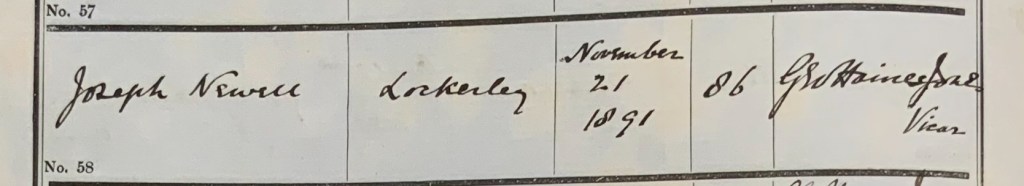 No. 57
Joseph Newell Lockerley November 21 1891 86 Geo Haines Jones Vicar
No. 58